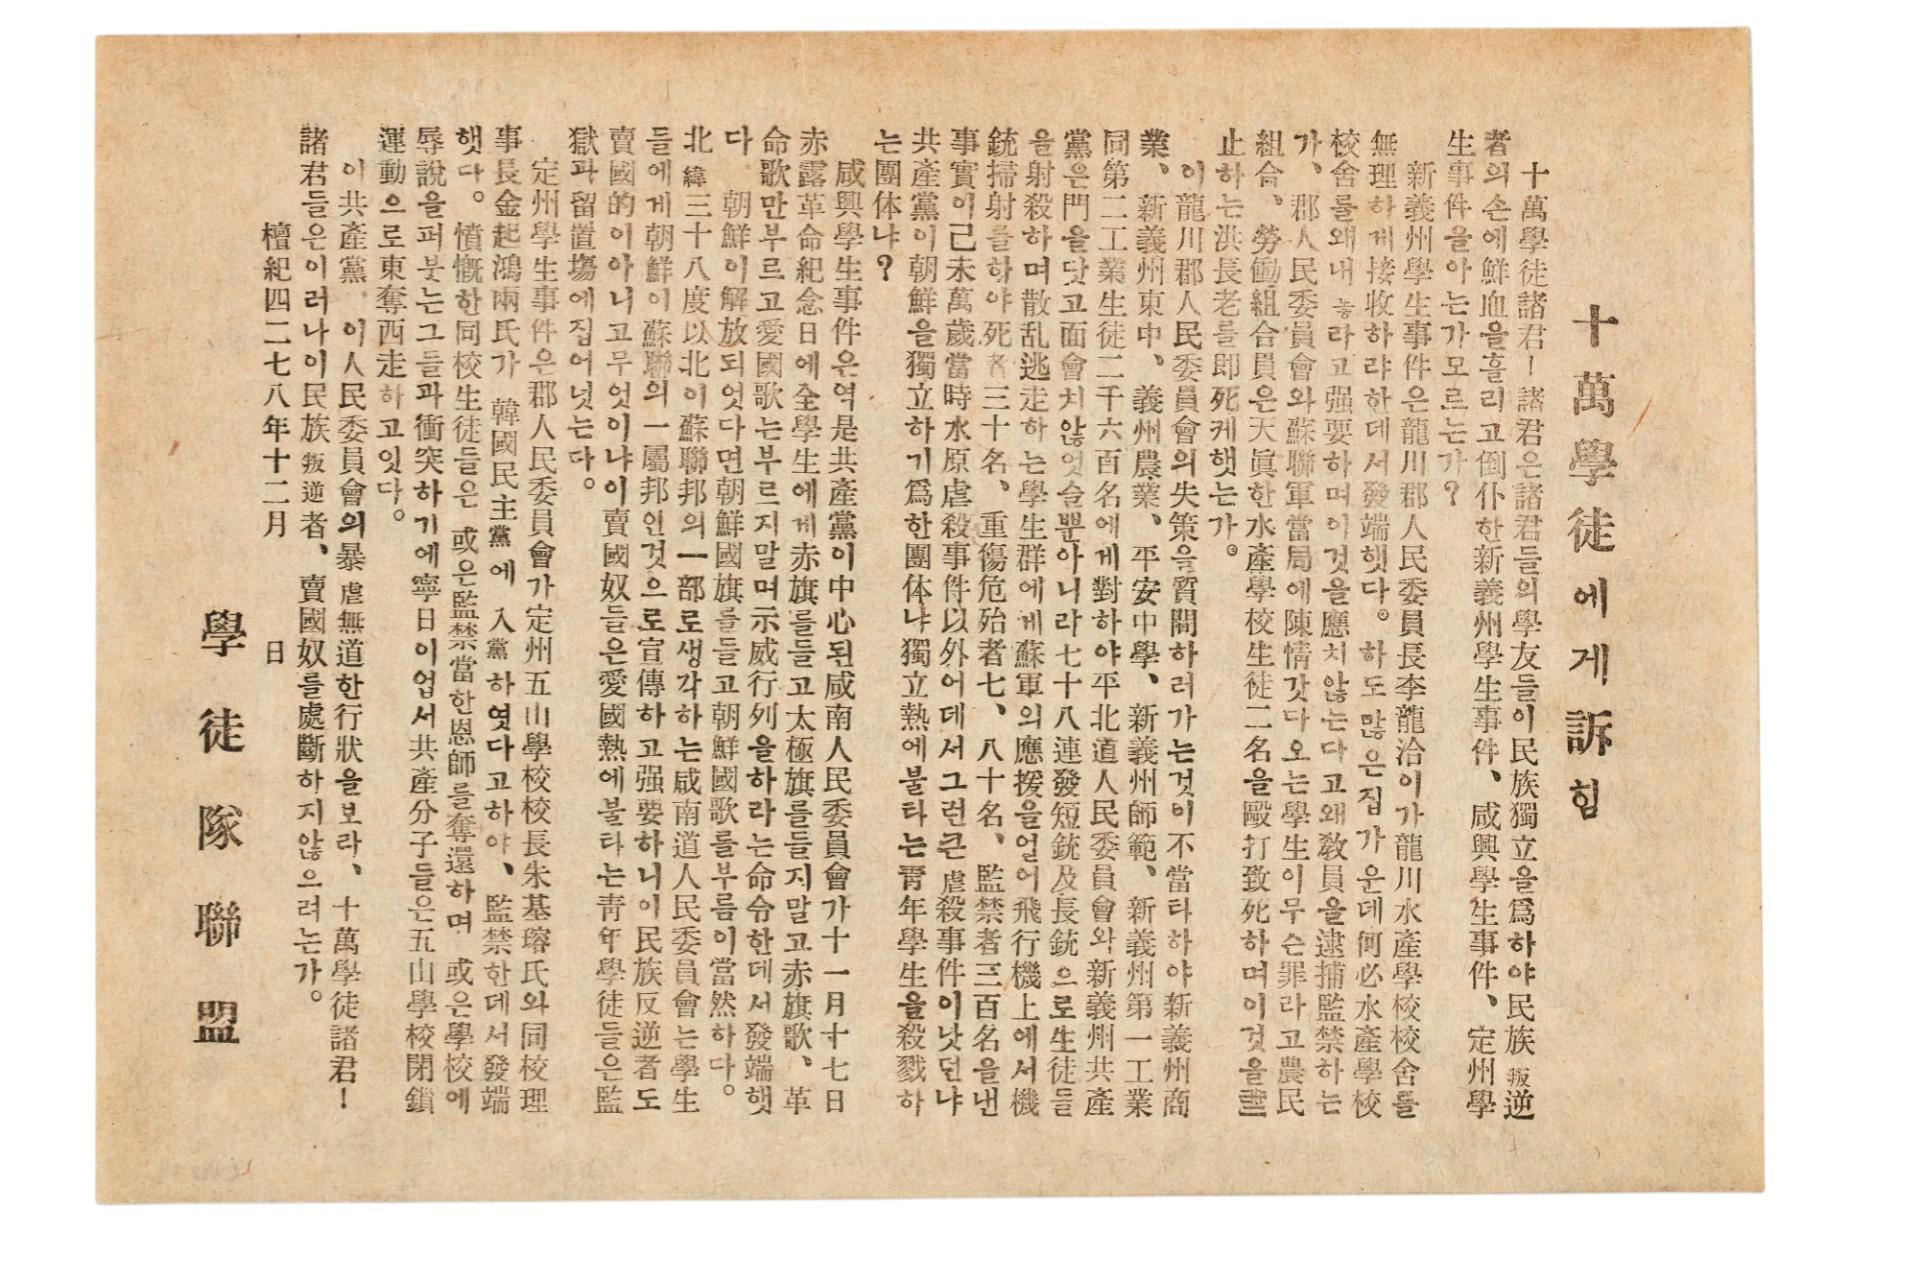 十萬學徒에게訴힘
十萬學徒諸君！諸君은諸君들의學友들이民族獨立을爲하야民族叛逆
者의손에鮮血을흘리고倒仆한新義州學生事件、咸興學生事件、定州學
生事件을아는가모르는가?
新義州學生事件은龍川郡人民委員長李龍洽이가龍川水產學校校舍를
無理하게接收하랴한데서發端햇다。하도많은집가운데何必水產學校
校舍를왜내놓라고强要하며이것을應치않는다고왜敎員을逮捕監禁하는
가、郡人民委員會와蘇聯軍當局에陳情갓다오는學生이무슨罪라고農民
組合、勞働組合員은天眞한水產學校生徒二名을毆打致死하며이것을
止하는洪長老를即死케햇는가。
이龍川郡人民委員會의失策을質問하러가는것이不當타하야新義州商
業、新義州東中、義州農業、平安中學、新義州師範、新義州第一工業
同第二工業生徒二千六百名에게對하야平北道人民委員會와新義州共產
黨은門을닷고面會치않엇슬뿐아니라七十八連發短銃及長銃으로生徒들
을射殺하며散乱逃走하는學生群에게蘇軍의應援을얻어飛行機上에서機
銃掃射를하야死者三十名、重傷危殆者七、八十名、監禁者三百名을낸
事實이己未萬歲當時水原虐殺事件以外어데서그런큰虐殺事件이낫던냐
共產黨이朝鮮을獨立하기爲한團体냐獨立熱에불타는靑年學生을殺戮하
는團体냐?
咸興學生事件은역是共產黨이中心된咸南人民委員會가十一月十七日
赤露革命紀念日에全學生에게赤旗를들고太極旗를들지말고赤旗歌、革
命歌만부르고愛國歌는부르지말며示威行列을하라는命令한데서發端햇
다 朝鮮이解放되엇다면朝鮮國旗를들고朝鮮國歌를부름이當然하다。
北緯三十八度以北이蘇聯邦의一部로생각하는咸南道人民委員會는學生
들에게朝鮮이蘇聯의一屬邦인것으로宣傳하고强要하니이民族反逆者도
賣國的이아니고무엇이냐이賣國奴들은愛國熱에불타는靑年學徒들은監
獄과留置場에집어넛는다。
定州學生事件은郡人民委員會가定州五山學校校長朱基瑢氏와同校理
事長金起鴻兩氏가 韓國民主黨에 入黨하엿다고하야、監禁한데서發端
햇다。憤慨한同校生徒들은 或은監禁當한恩師를奪還하며 或은學校에
辱說을퍼붓는그들과衝突하기에寧日이업서共產分子들은五山學校閉鎖
運動으로東奪西走하고잇다。
이共產黨 이人民委員會의暴虐無道한行狀을보라、十萬學徒諸君！
諸君들은이러나이民族叛逆者、賣國奴를處斷하지않으려는가。
檀紀四二七八年十二月　　日
學徒隊聯盟